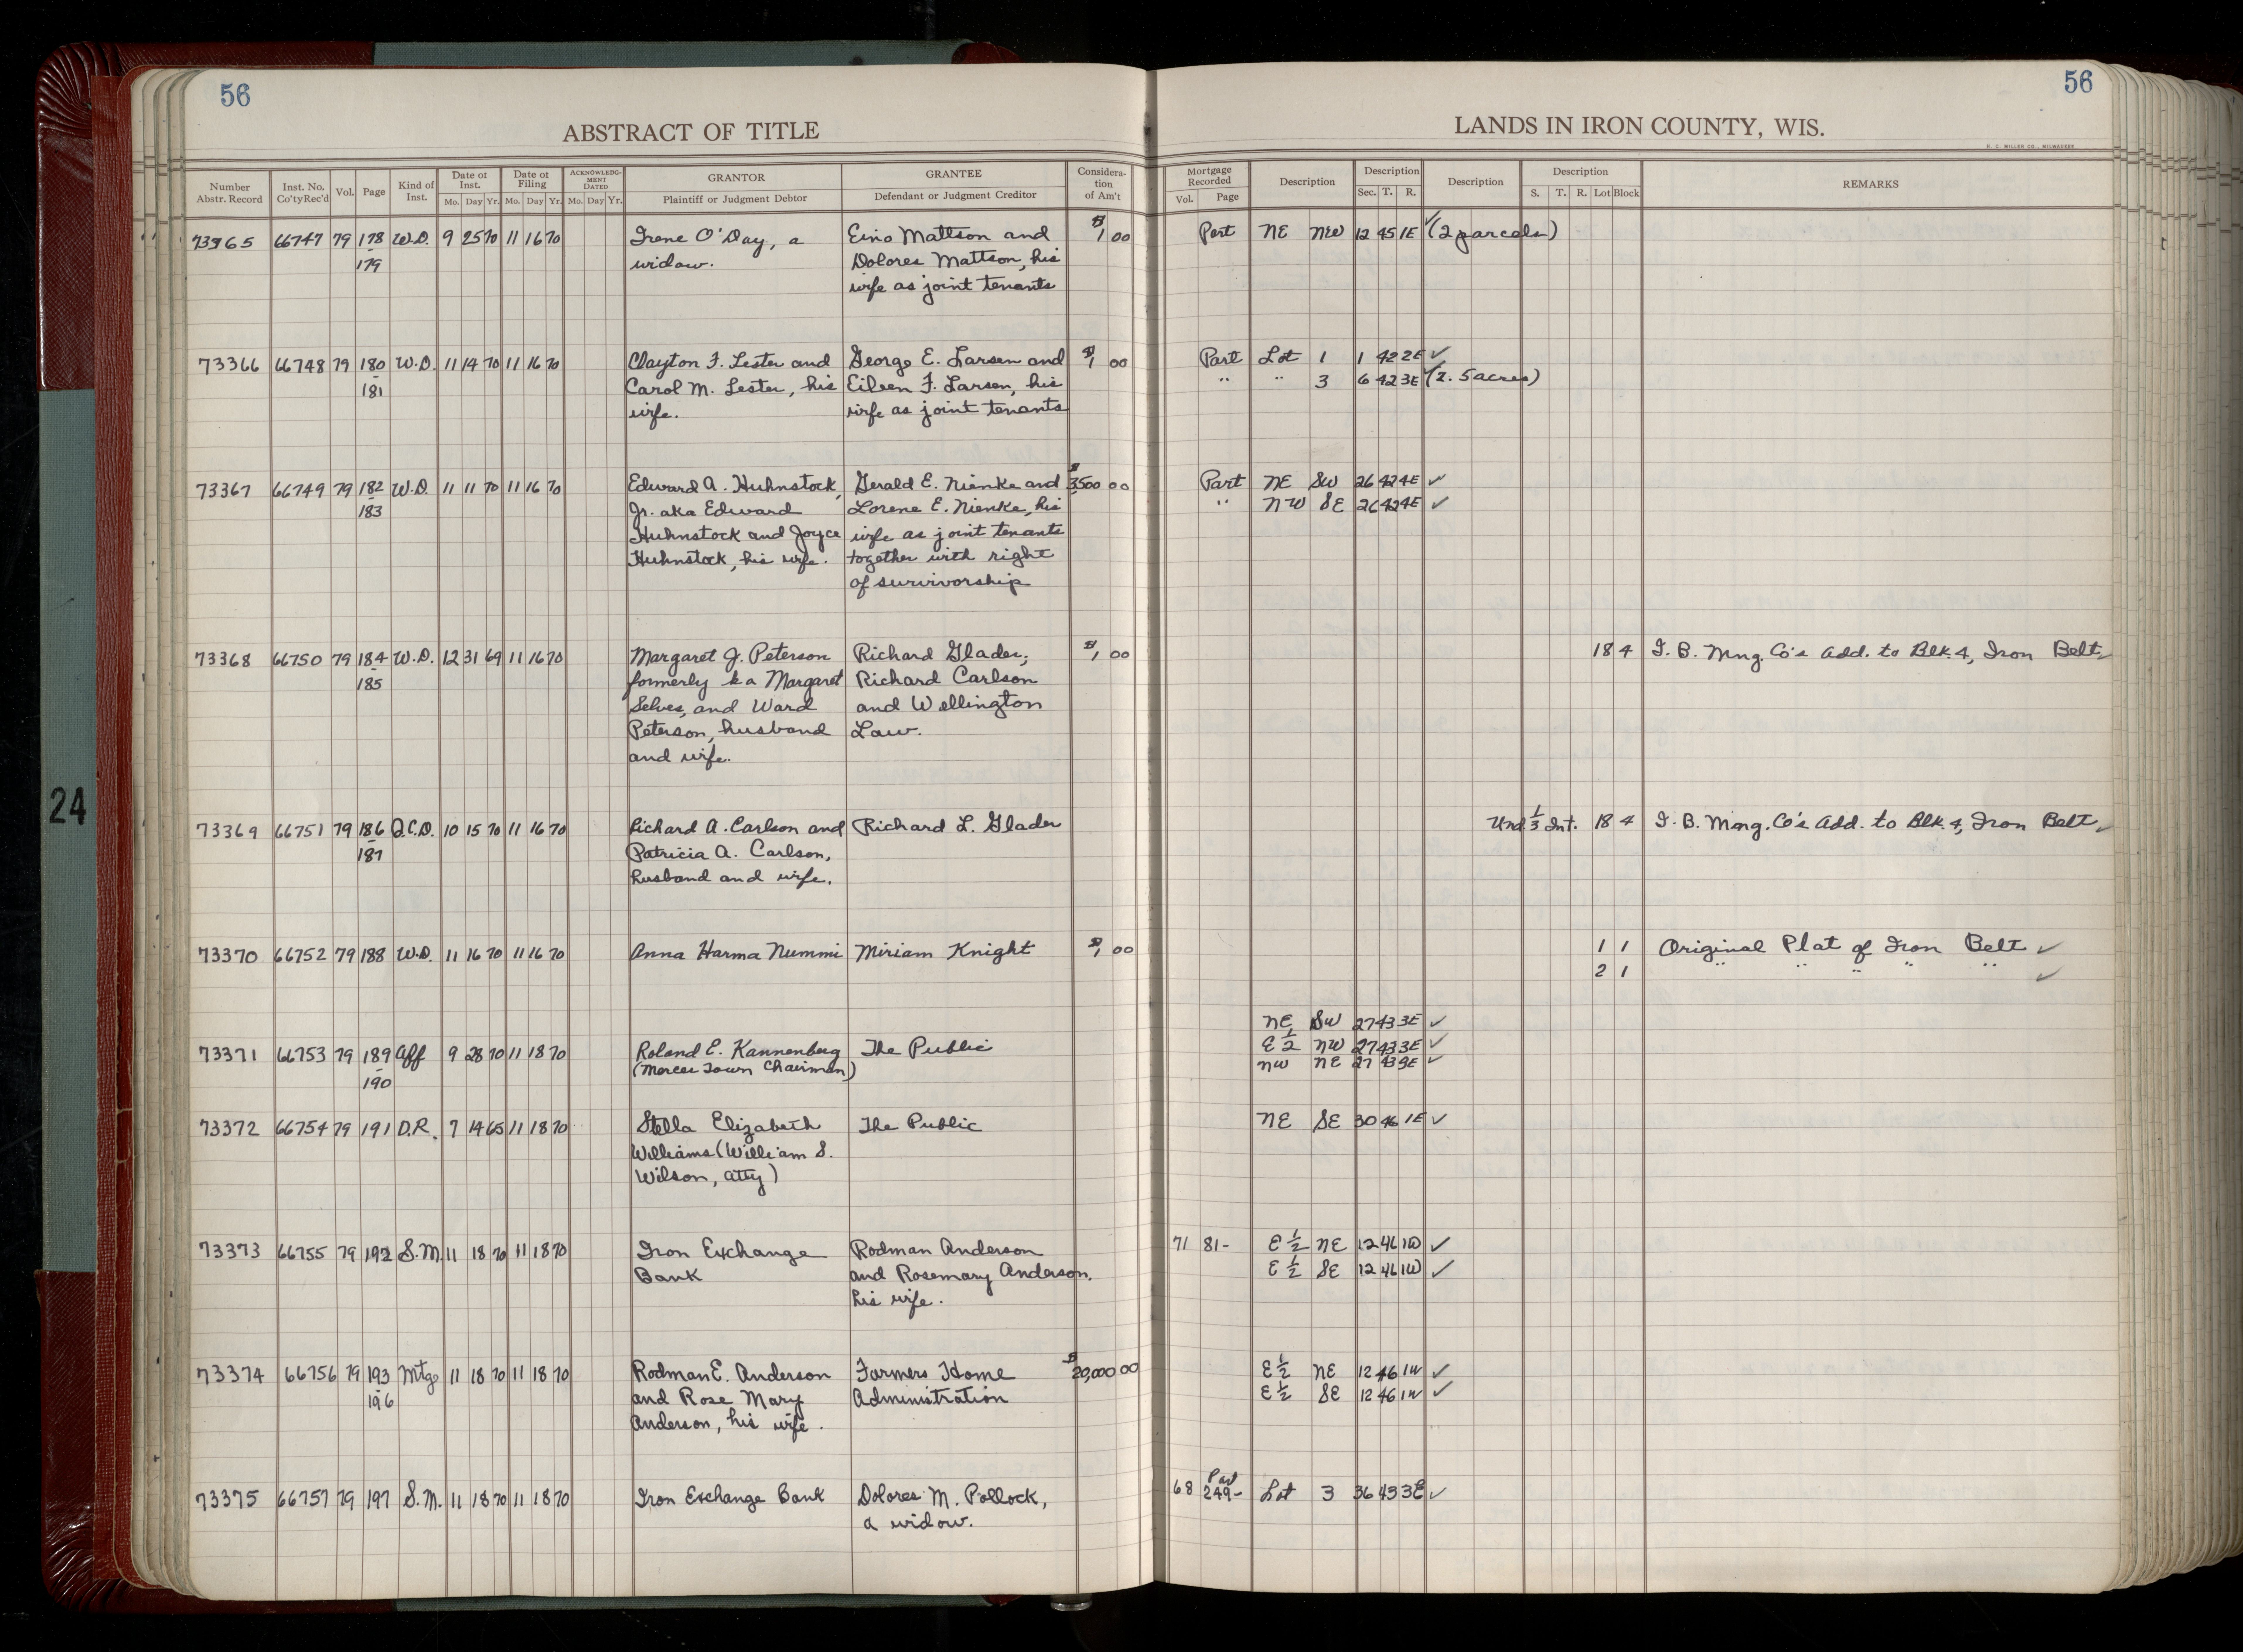 56
56
ABSTRACT OF TITLE
LANDS IN IRON COUNTY, WIS.
H. C. MILLER CO., MILWAUKEE
Number Abstr. Record | Inst. No. Co'ty Rec'd | Vol. | Page | Kind of Inst. | Date of Inst. Mo. Day Yr. | Date of Filing Mo. Day Yr. | ACKNOWLEDG-MENT DATED Mo. Day Yr. | GRANTOR Plaintiff or Judgment Debtor | GRANTEE Defendant or Judgment Creditor | Considera-tion of Am't | Mortgage Recorded Vol. Page | Description | Description Sec. T. R. | Description | Description S. T. R. Lot Block | REMARKS
73365 66747 79 178 W.D. 9 25 70 11 16 70 Irene O'Day, a Eino Mattson and $1 00 Part NE NW 12 45 1E ✓ (2 parcels)
179 widow. Dolores Mattson, his
wife as joint tenants
73366 66748 79 180 W.D. 11 14 70 11 16 70 Clayton F. Lester and George E. Larsen and $1 00 Part Lot 1 1 42 2E ✓
181 Carol M. Lester, his Eileen F. Larsen, his " " 3 6 42 3E ✓ (2.5 acres)
wife. wife as joint tenants
73367 66749 79 182 W.D. 11 11 70 11 16 70 Edward A. Huhnstock, Gerald E. Nienke and $3500 00 Part NE SW 26 42 4E ✓
183 Jr. aka Edward Lorene E. Nienke, his " NW SE 26 42 4E ✓
Huhnstock and Joyce wife as joint tenants
Huhnstock, his wife. together with right
of survivorship
73368 66750 79 184 W.D. 12 31 69 11 16 70 Margaret J. Peterson Richard Glader, $1 00 18 4 I. B. Mng. Co's Add. to Blk. 4, Iron Belt ✓
185 formerly ka Margaret Richard Carlson
Selves, and Ward and Wellington
Peterson, husband Law.
and wife.
24
73369 66751 79 186 Q.C.D. 10 15 70 11 16 70 Richard A. Carlson and Richard L. Glader Und. 1/3 Int. 18 4 I. B. Mng. Co's Add. to Blk. 4, Iron Belt ✓
187 Patricia A. Carlson,
husband and wife.
73370 66752 79 188 W.D. 11 16 70 11 16 70 Anna Harma Nummi Miriam Knight $1 00 1 1 Original Plat of Iron Belt ✓
2 1 " " " " " ✓
NE SW 27 43 3E ✓
73371 66753 79 189 Aff 9 28 70 11 18 70 Roland E. Kannenberg The Public E 1/2 NW 27 43 3E ✓
190 (Mercer Town Chairman) NW NE 27 43 3E ✓
73372 66754 79 191 D.R. 7 14 65 11 18 70 Stella Elizabeth The Public NE SE 30 46 1E ✓
Williams (William S.
Wilson, atty)
73373 66755 79 192 S.M. 11 18 70 11 18 70 Iron Exchange Rodman Anderson 71 81- E 1/2 NE 12 46 1W ✓
Bank and Rosemary Anderson, E 1/2 SE 12 46 1W ✓
his wife.
73374 66756 79 193 Mtg 11 18 70 11 18 70 Rodman E. Anderson Farmers Home $20,000 00 E 1/2 NE 12 46 1W ✓
196 and Rose Mary Administration E 1/2 SE 12 46 1W ✓
Anderson, his wife.
73375 66757 79 197 S.M. 11 18 70 11 18 70 Iron Exchange Bank Dolores M. Pollock, 68 249- Part Lot 3 36 43 3E ✓
a widow.